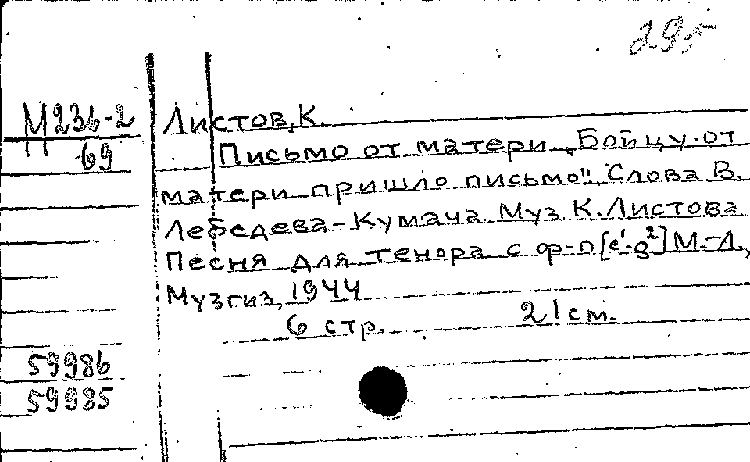 295
М236-2
69
Листов, К.
Письмо от матери „Бойцу от
матери пришло письмо". Слова В.
Лебедева-Кумача. Муз. К. Листова
Песня для тенора с ф-п [e¹-g²] М.-Л.,
Музгиз, 1944
6 стр. 21 cm.
59986
59985